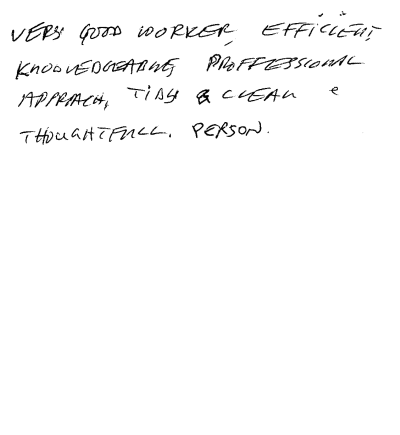 VERY GOOD WORKER, EFFICIENT,
KNOWLEDGEABLE, PROFFESSIONAL
APPRACH, TIDY & CLEAN e
THOUGHTFULL. PERSON.